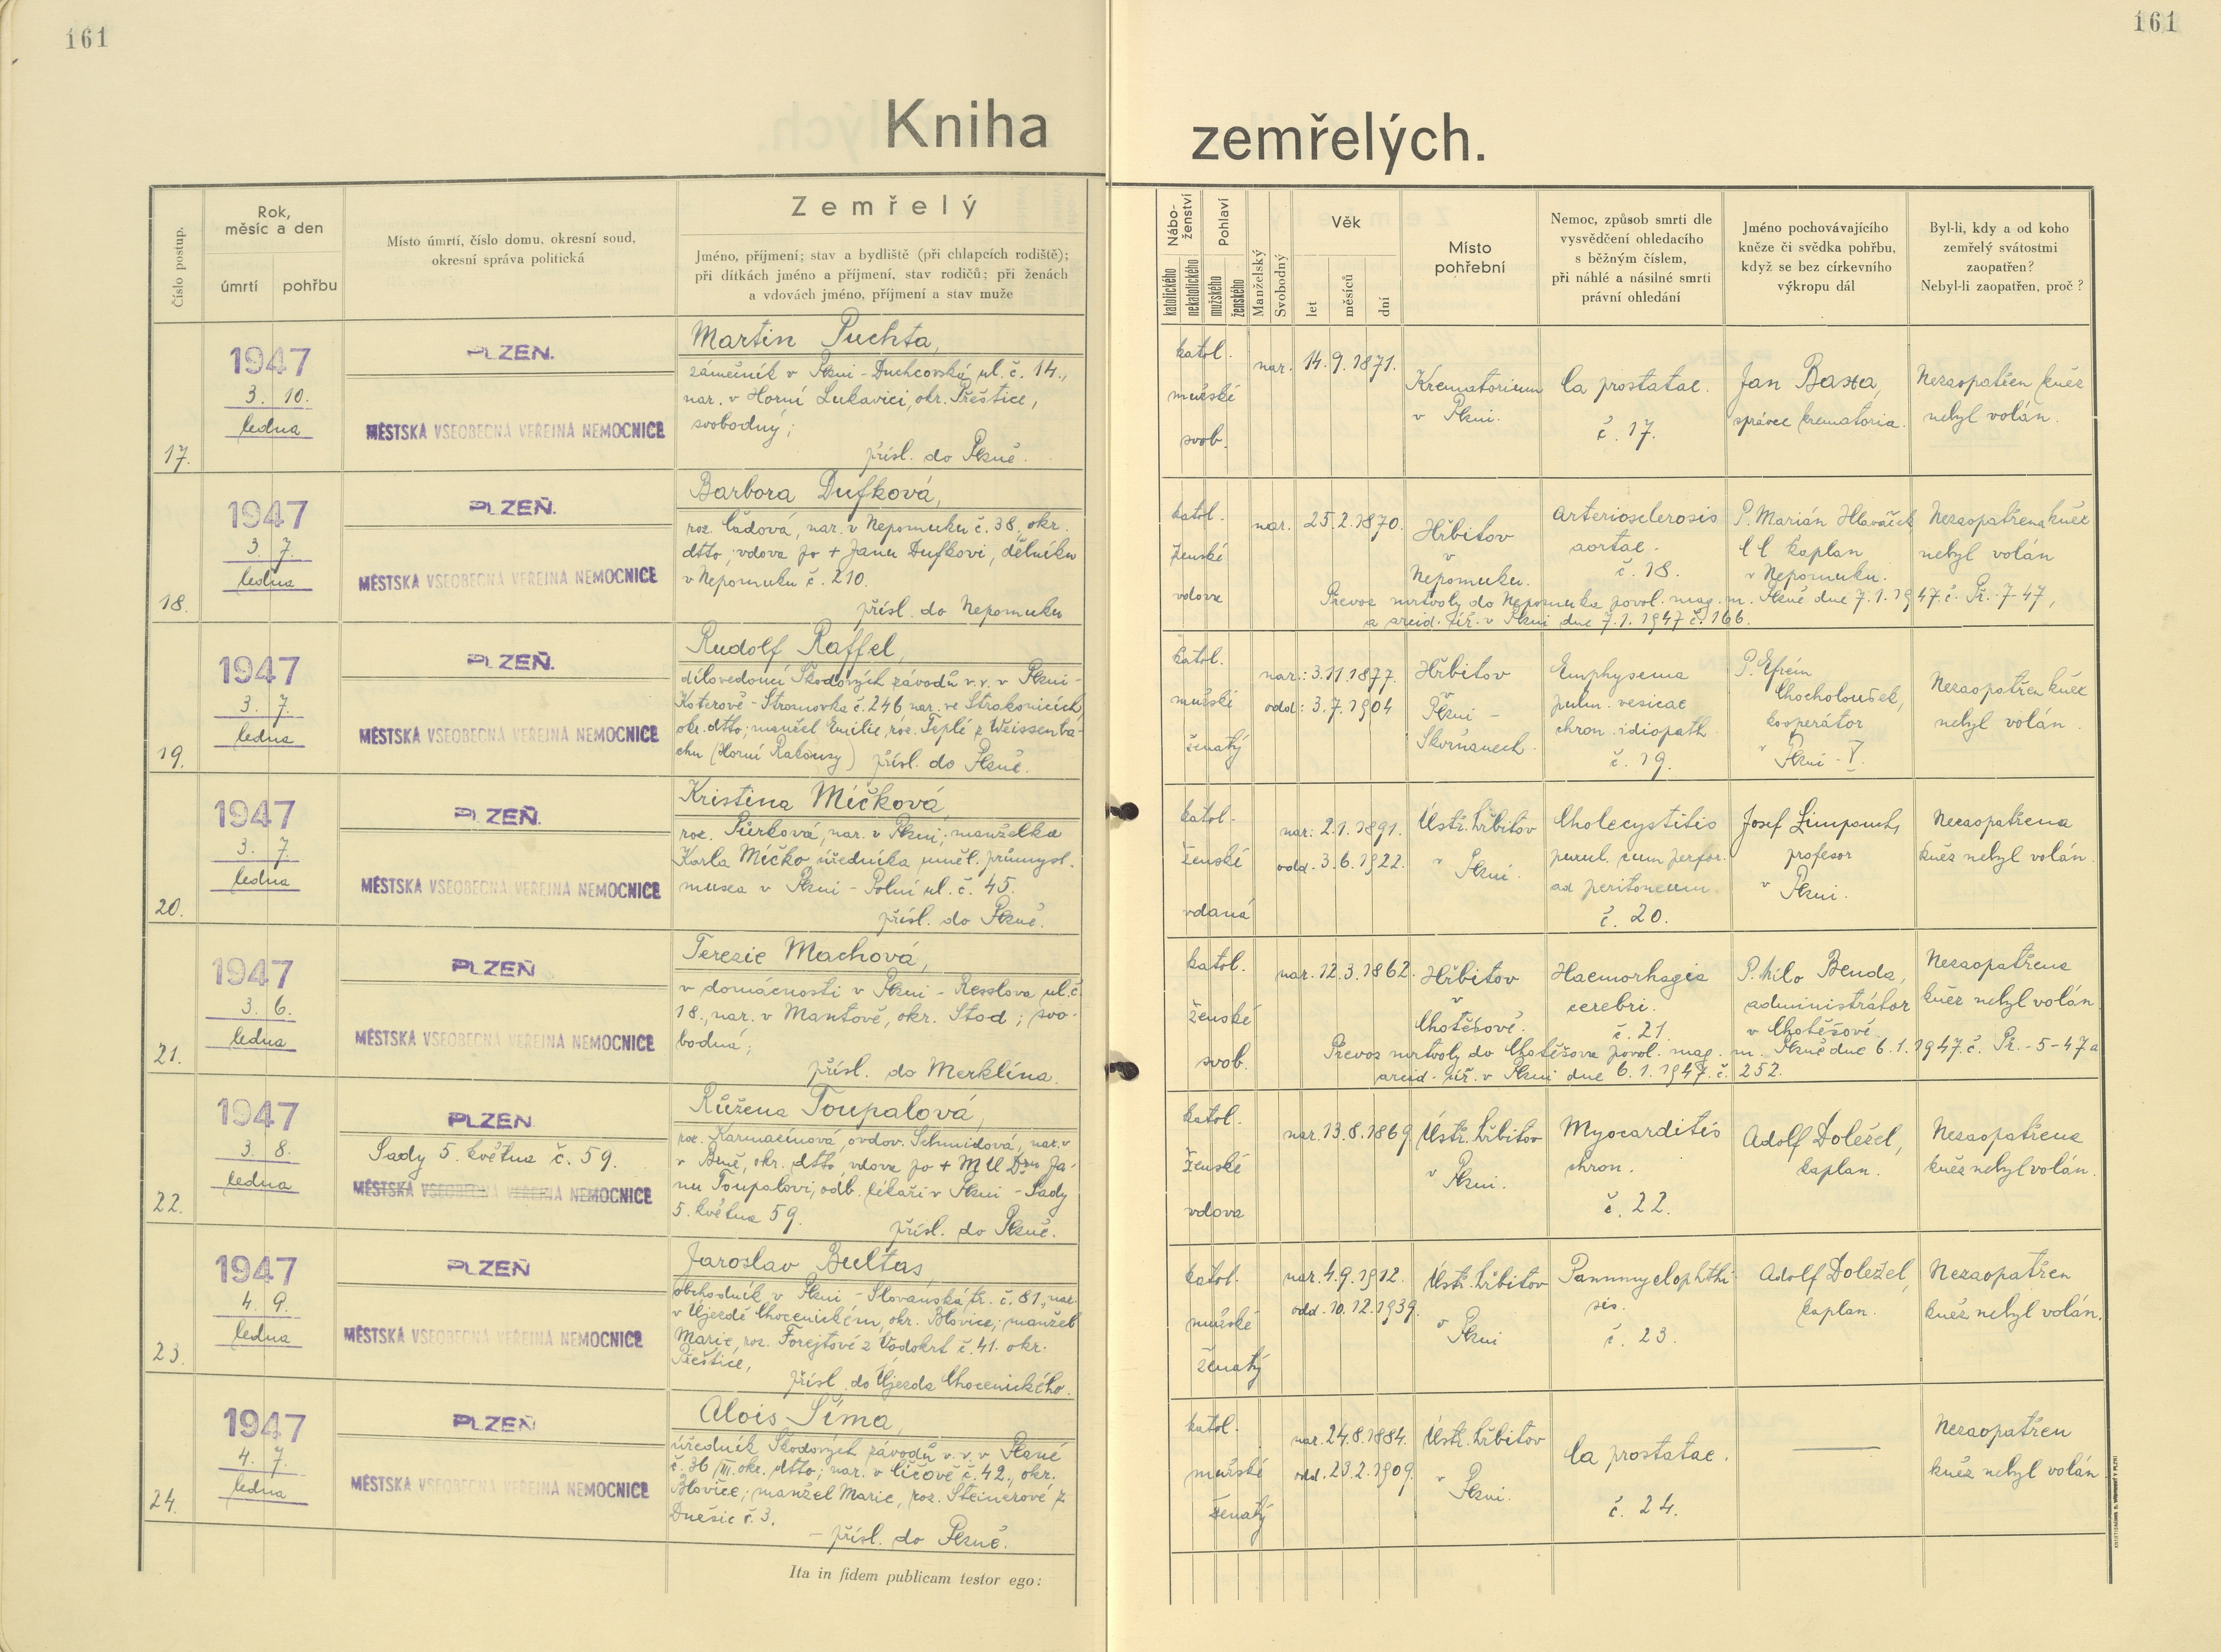 161
161
Kniha zemřelých.
Číslo postup.
Rok, měsíc a den
úmrtí
pohřbu
Místo úmrtí, číslo domu, okresní soud,
okresní správa politická
Zemřelý
Jméno, příjmení; stav a bydliště (při chlapcích rodiště);
při dítkách jméno a příjmení, stav rodičů; při ženách
a vdovách jméno, příjmení a stav muže
Nábo-
ženství
katolického
nekatolického
Pohlaví
mužského
ženského
Manželský
Svobodný
Věk
let
měsíců
dní
Místo
pohřební
Nemoc, způsob smrti dle
vysvědčení ohledacího
s běžným číslem,
při náhlé a násilné smrti
právní ohledání
Jméno pochovávajícího
kněze či svědka pohřbu,
když se bez církevního
výkropu dál
Byl-li, kdy a od koho
zemřelý svátostmi
zaopatřen?
Nebyl-li zaopatřen, proč?
17.
1947
3. 10.
ledna
PLZEŇ.
MĚSTSKÁ VŠEOBECNÁ VEŘEJNÁ NEMOCNICE
Martin Puchta,
zámečník v Plzni - Duchcovská ul. č. 14.,
nar. v Horní Lukavici, okr. Přeštice,
svobodný;
přísl. do Plzně.
katol.
mužské
svob.
nar. 14.9.1871.
Krematorium
v Plzni.
Ca prostatae.
č. 17.
Jan Baxa,
správce krematoria.
Nezaopatřen kněz
nebyl volán.
18.
1947
3. 7.
ledna
PLZEŇ.
MĚSTSKÁ VŠEOBECNÁ VEŘEJNÁ NEMOCNICE
Barbora Dufková,
roz. Čádová, nar. v Nepomuku č. 38, okr.
dtto, vdova po + Janu Dufkovi, dělníku
v Nepomuku č. 210.
přísl. do Nepomuku
katol.
ženské
vdova
nar. 25.2.1870.
Hřbitov
v
Nepomuku.
Arteriosclerosis
aortae.
č. 18.
P. Marián Hlaváček
kaplan
v Nepomuku.
Nezaopatřena kněz
nebyl volán
Převoz mrtvoly do Nepomuka povol. mag. m. Plzně dne 7.1.1947 č. Př. 7-47,
a arcid. úř. v Plzni dne 7.1.1947 č. 166.
19.
1947
3. 7.
ledna
PLZEŇ.
MĚSTSKÁ VŠEOBECNÁ VEŘEJNÁ NEMOCNICE
Rudolf Raffel,
dílovedoucí Škodových závodů v.v. v Plzni -
Koterově - Stromovka č. 246 nar. ve Strakonicích,
okr. dtto; manžel Emilie, roz. Teplé z Weissenba-
chu (Horní Rakousy) přísl. do Plzně.
katol.
mužské
ženatý
nar.: 3.11.1877.
odd.: 3.7.1904
Hřbitov
v
Plzni -
Skvrňanech.
Emphysema
pulm. vesicae
chron. idiopath.
č. 19.
P. Efrém
Chocholoušek,
kooperátor
v Plzni - V.
Nezaopatřen kněz
nebyl volán.
20.
1947
3. 7.
ledna
PLZEŇ.
MĚSTSKÁ VŠEOBECNÁ VEŘEJNÁ NEMOCNICE
Kristina Míčková,
roz. Sůrková, nar. v Plzni; manželka
Karla Míčko úředníka uměl. průmysl.
musea v Plzni - Polní ul. č. 45.
přísl. do Plzně.
katol.
ženské
vdaná
nar.: 2.1.1891.
odd. 3.6.1922.
Ústř. hřbitov
v Plzni.
Cholecystitis
purul. cum perfor.
ad peritoneum.
č. 20.
Josef Limpouch,
profesor
v Plzni.
Nezaopatřena
kněz nebyl volán.
21.
1947
3. 6.
ledna
PLZEŇ
MĚSTSKÁ VŠEOBECNÁ VEŘEJNÁ NEMOCNICE
Terezie Machová,
v domácnosti v Plzni - Resslova ul. č.
18., nar. v Mantově, okr. Stod; svo-
bodná;
přísl. do Merklína.
katol.
ženské
svob.
nar. 12.3.1862.
Hřbitov
v
Chotěšově.
Haemorhagia
cerebri.
č. 21.
P. Milo Benda,
administrátor
v Chotěšově.
Nezaopatřena
kněz nebyl volán.
Převoz mrtvoly do Chotěšova povol. mag. m. Plzně dne 6.1.1947. č. Př. - 5 - 47 a
arcid. úř. v Plzni dne 6.1.1947. č. 252.
22.
1947
3. 8.
ledna
PLZEŇ
Sady 5. května č. 59.
MĚSTSKÁ VŠEOBECNÁ VEŘEJNÁ NEMOCNICE
Růžena Toupalová,
roz. Karmazínová, ovdov. Schmidová, nar. v
v Brně, okr. dtto, vdova po + MUDru Ja-
nu Toupalovi, odb. lékaři v Plzni - Sady
5. května 59.
přísl. do Plzně.
katol.
ženské
vdova
nar. 13.8.1869
Ústř. hřbitov
v Plzni.
Myocarditis
chron.
č. 22.
Adolf Doležel,
kaplan.
Nezaopatřena
kněz nebyl volán.
23.
1947
4. 9.
ledna
PLZEŇ
MĚSTSKÁ VŠEOBECNÁ VEŘEJNÁ NEMOCNICE
Jaroslav Bultas
obchodník v Plzni - Slovanská tř. č. 81., nar.
v Újezdě Chocenickém, okr. Blovice; manžel
Marie, roz. Forejtové z Vodokrt č. 41. okr.
Přeštice,
přísl. do Újezda Chocenického.
katol.
mužské
ženatý
nar. 4.9.1912.
odd. 10.12.1939.
Ústř. hřbitov
v Plzni
Pannmyelophthi-
sis.
č. 23.
Adolf Doležel,
kaplan.
Nezaopatřen
kněz nebyl volán.
24.
1947
4. 7.
ledna
PLZEŇ
MĚSTSKÁ VŠEOBECNÁ VEŘEJNÁ NEMOCNICE
Alois Šíma,
úředník Škodových závodů v.v. v Plzni
č. 36/III. okr. dtto; nar. v Číčově č. 42., okr.
Blovice; manžel Marie, roz. Steinerové z
Dnešic č. 3.
- přísl. do Plzně.
katol.
mužské
ženatý
nar. 24.8.1884.
odd. 23.2.1909.
Ústř. hřbitov
v Plzni.
Ca prostatae.
č. 24.
Nezaopatřen
kněz nebyl volán
Ita in fidem publicam testor ego: